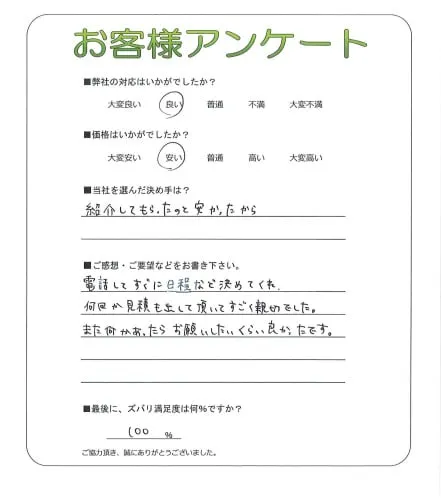 お客様アンケート
■弊社の対応はいかがでしたか?
大変良い 良い 普通 不満 大変不満
■価格はいかがでしたか?
大変安い 安い 普通 高い 大変高い
■当社を選んだ決め手は?
紹介してもらったのと安かったから
■ご感想・ご要望などをお書き下さい。
電話してすぐに日程など決めてくれ、
何回か見積も出して頂いてすごく親切でした。
また何かあったらお願いしたいくらい良かったです。
■最後に、ズバリ満足度は何%ですか?
100 %
ご協力頂き、誠にありがとうございました。